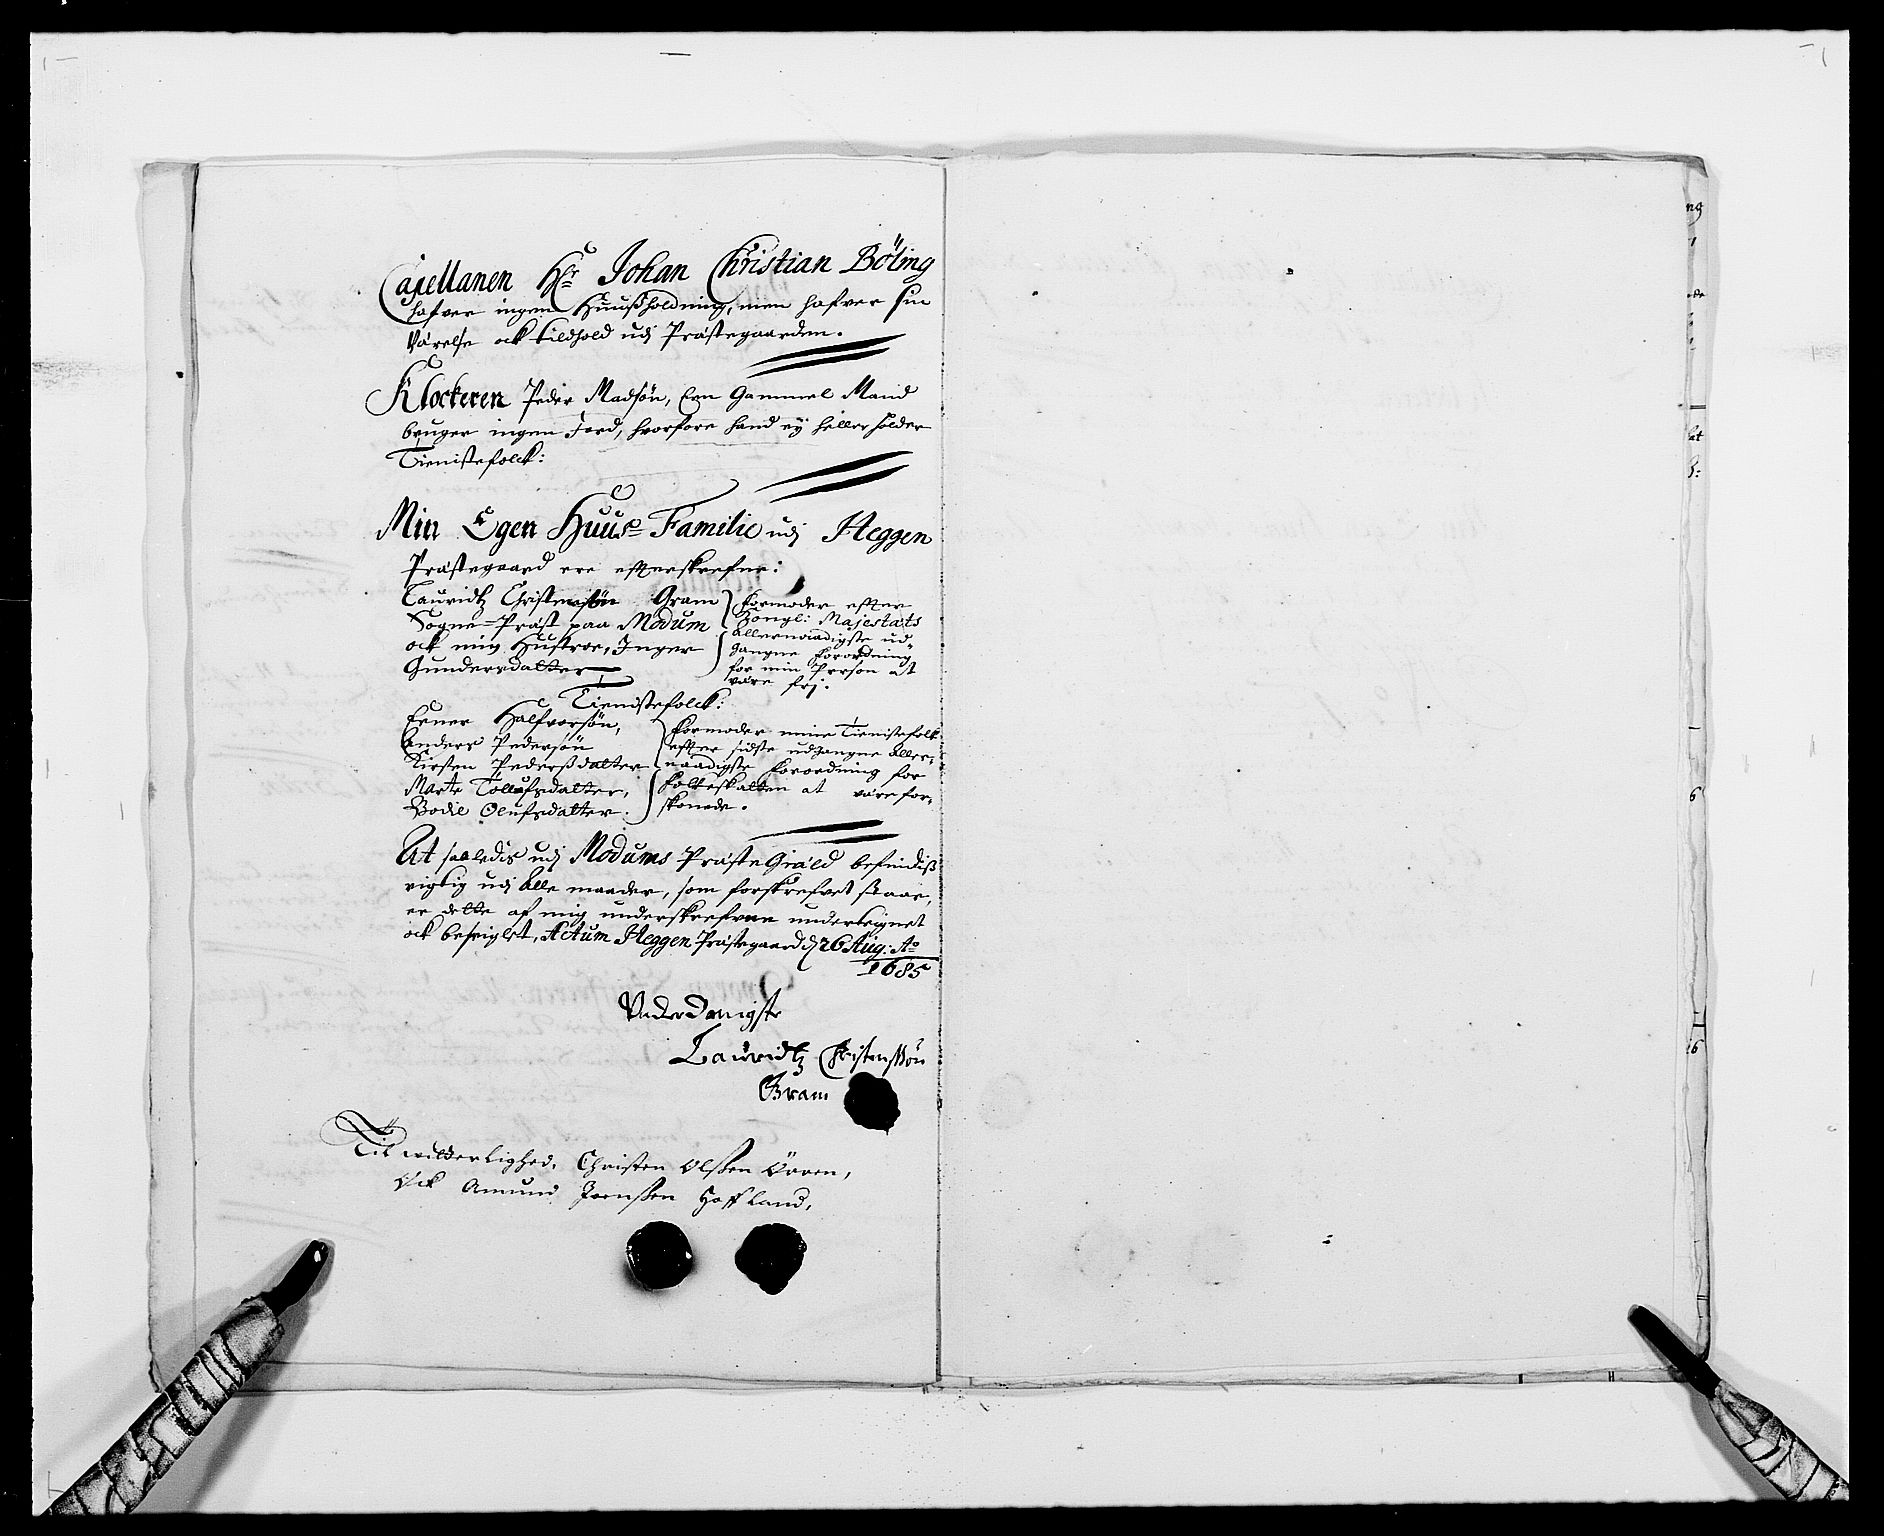 Capellanen Hr Johan Christian Böling
hafver ingen Huusholdning, men hafver sin
Værelse ock tilhold udj Præstegaarden.
Klockeren Peder Madsön, Een Gammel Mand
bruger ingen Jord, hvorfore hand ey heller holder
Tienistefolck:
Min Egen Huus-Familie udj Heggen
Præstegaard ere efterskrefne:
Lauridtz Christensön Gram
Sogne-Præst paa Modum
ock min Hustroe, Inger
Gundersdatter
formoder efter
Kongl: Majestæts
allernaadigste ud-
gangne forordning
for min Person at
være frj.
Tienistefolck:
Halfvorsön,
Anders Pedersön
Kirsten Pedersdatter
Marte Tollufsdatter,
Bodil Olufsdatter.
formoder mine Tienistefolk
efter sidste udgangne Aller-
naadigste forordning for
folkeskatten at være for-
skonede.
At saaledis udj Modums PræsteGiæld befindis
rigtig udj Alle maader, som forskrefvet staar,
er dette af mig underskrefven underteignet
ock beseiglet, Actum Heggen Præstegaard d 26 Aug: Ao
1685
Underdanigste
Lauridtz Christensön
Gram
Til witterlighed, Christen Olssen
Ock Amund Joenssen Hoffland,
ng
6